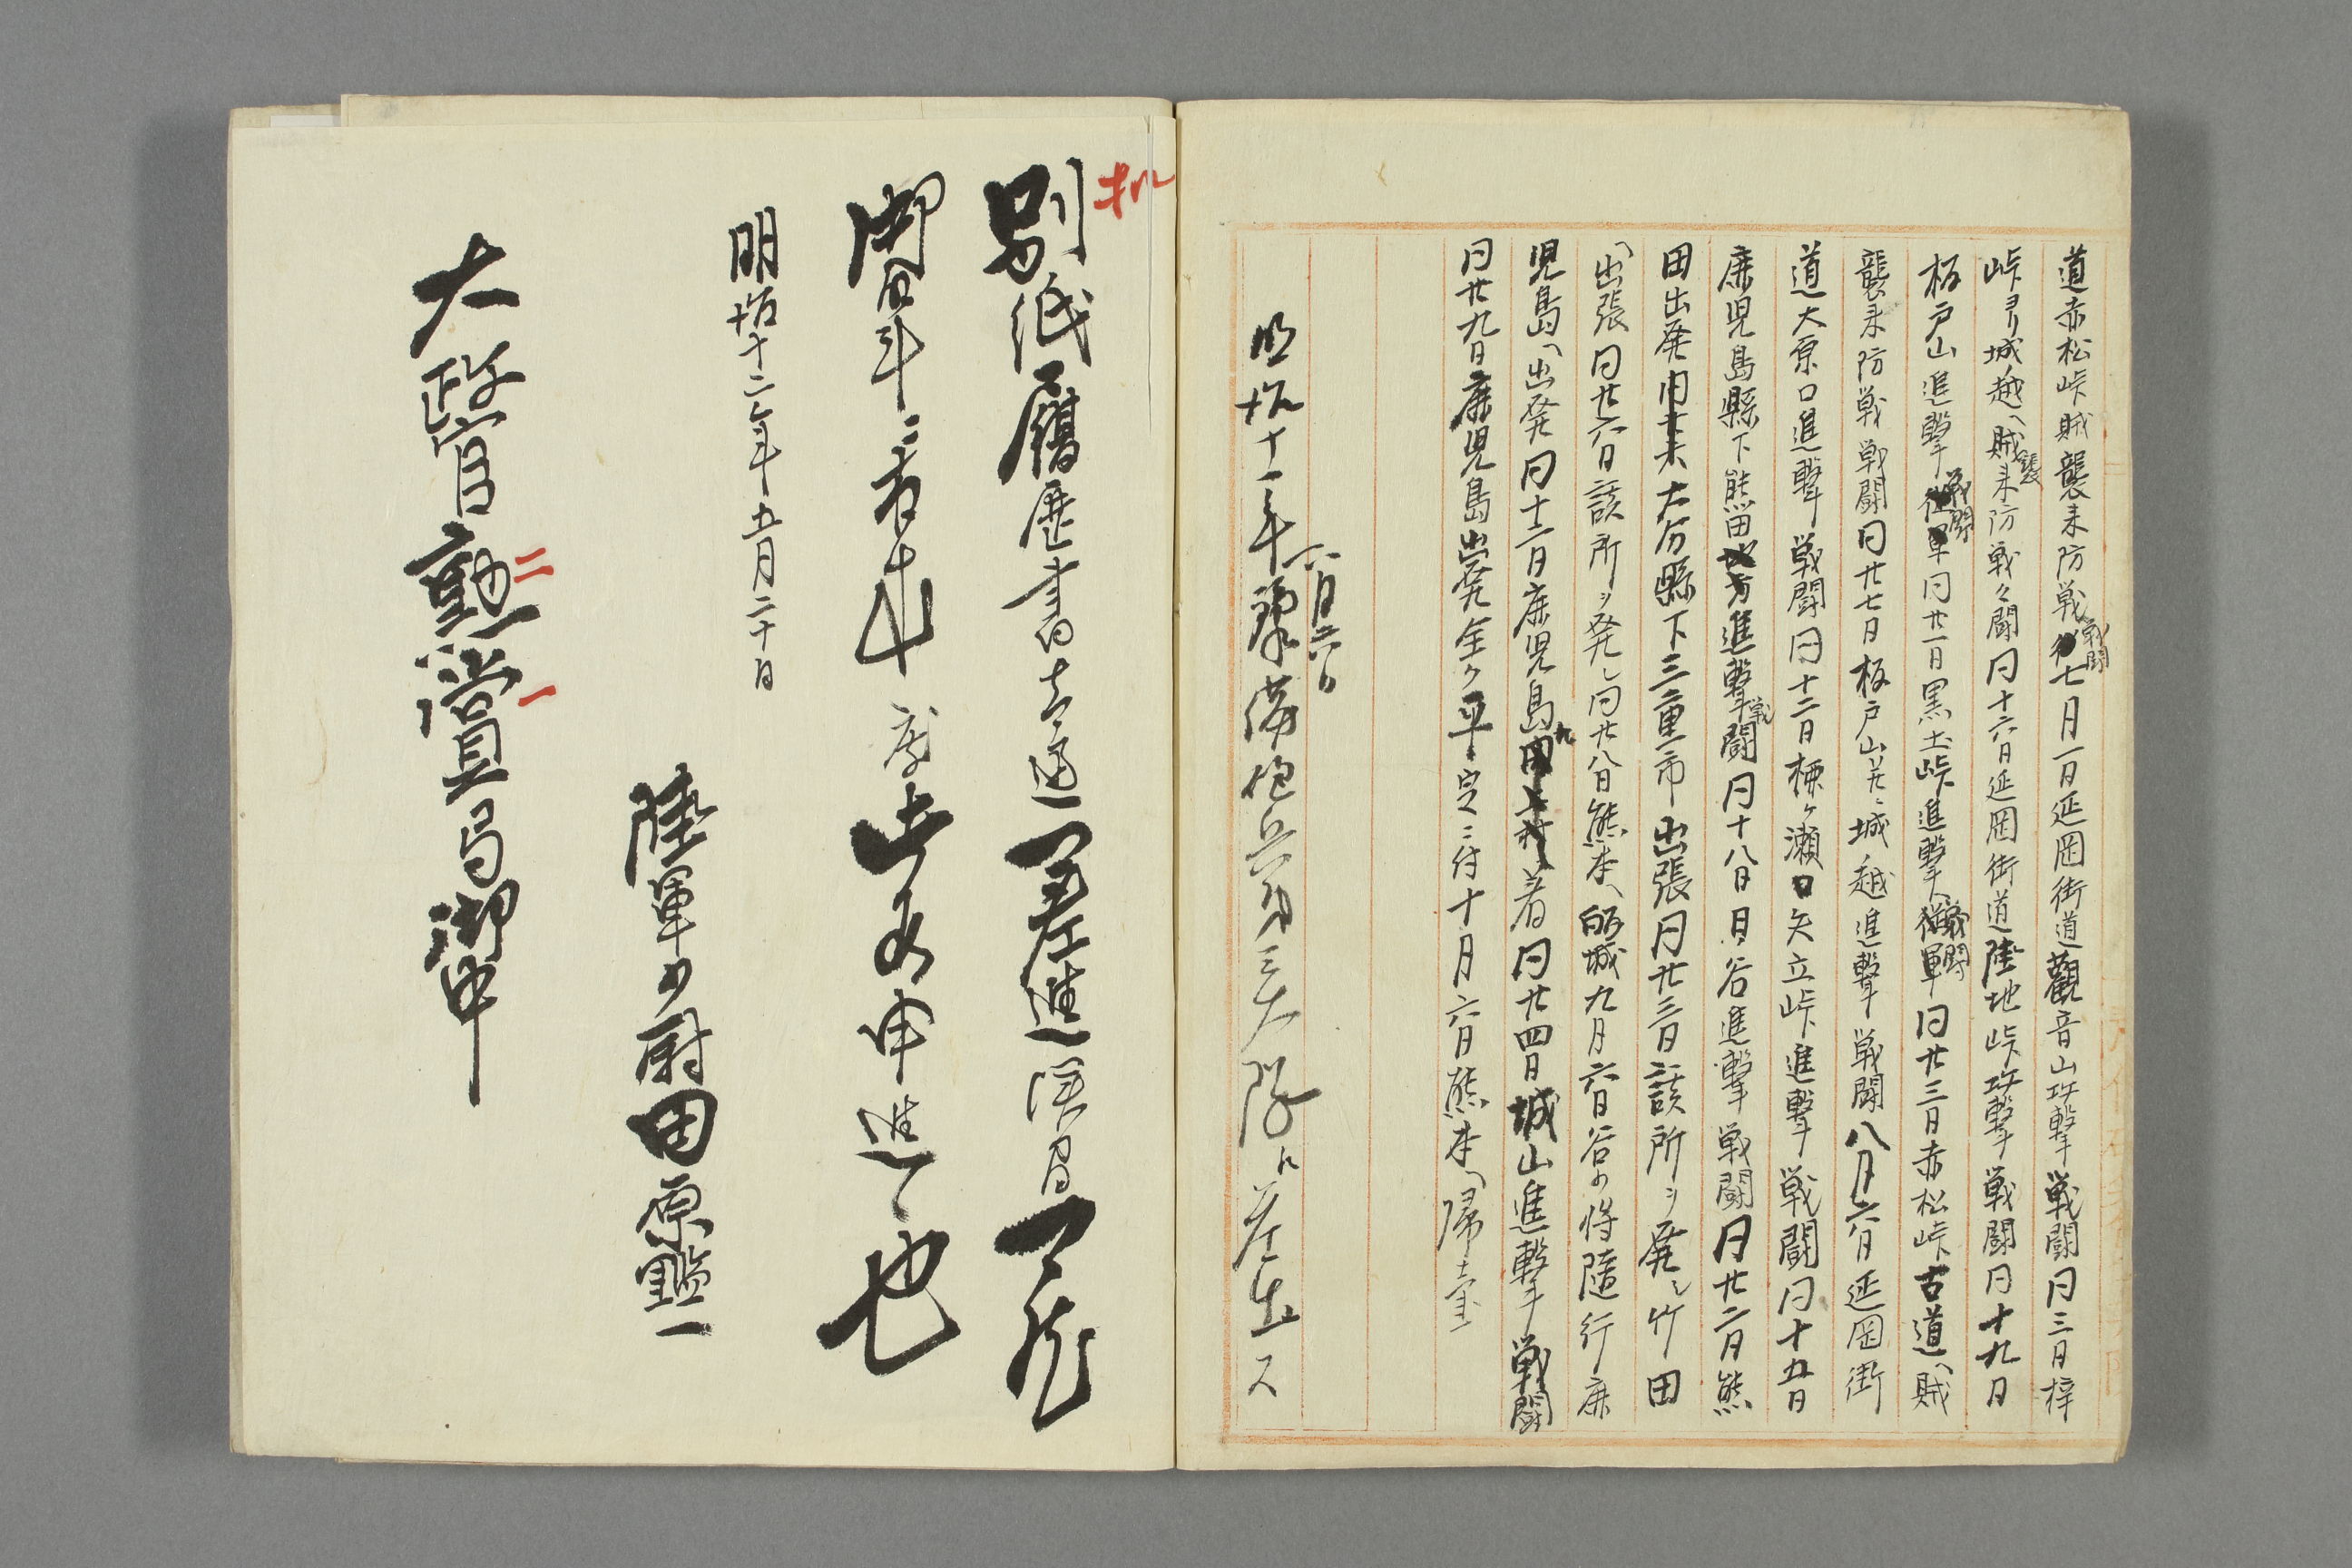 道赤松峠賊襲来防戦戦闘七月一日延岡街道観音山攻撃戦闘同三日梓
峠ヨリ城越ヘ賊襲来防戦々闘同十六日延岡街道陸地峠攻撃戦闘同十九日
板戸山進撃戦闘同廿一日黒土峠進撃戦闘同廿三日赤松峠古道ヘ賊
襲来防戦戦闘同廿七日板戸山并ニ城越進撃戦闘八月六日延岡街
道大原口進撃戦闘同十二日楝ケ瀬口矢立峠進撃戦闘同十五日
鹿児島縣下熊田進撃戦闘同十八日日谷進撃戦闘同廿二日熊
田出発大分縣下三重市出張同廿三日該所ヲ発シ竹田
ヘ出張同廿六日該所ヲ発シ同廿八日熊本ヘ皈城九月六日谷少将随行鹿
児島ヘ出発同十二日鹿児島ヘ着同廿四日城山進撃戦闘
同廿九日鹿児島出発全ク平定ニ付十月六日熊本ヘ帰臺
六月六日
明治十一年豫備砲兵第三大隊ニ差出ス
扣
別紙履歴書壱通差進候間
御落手
此段申進候也
明治十二年五月二十日
陸軍少尉田原鑑一
太政官勲賞局御中
二
一